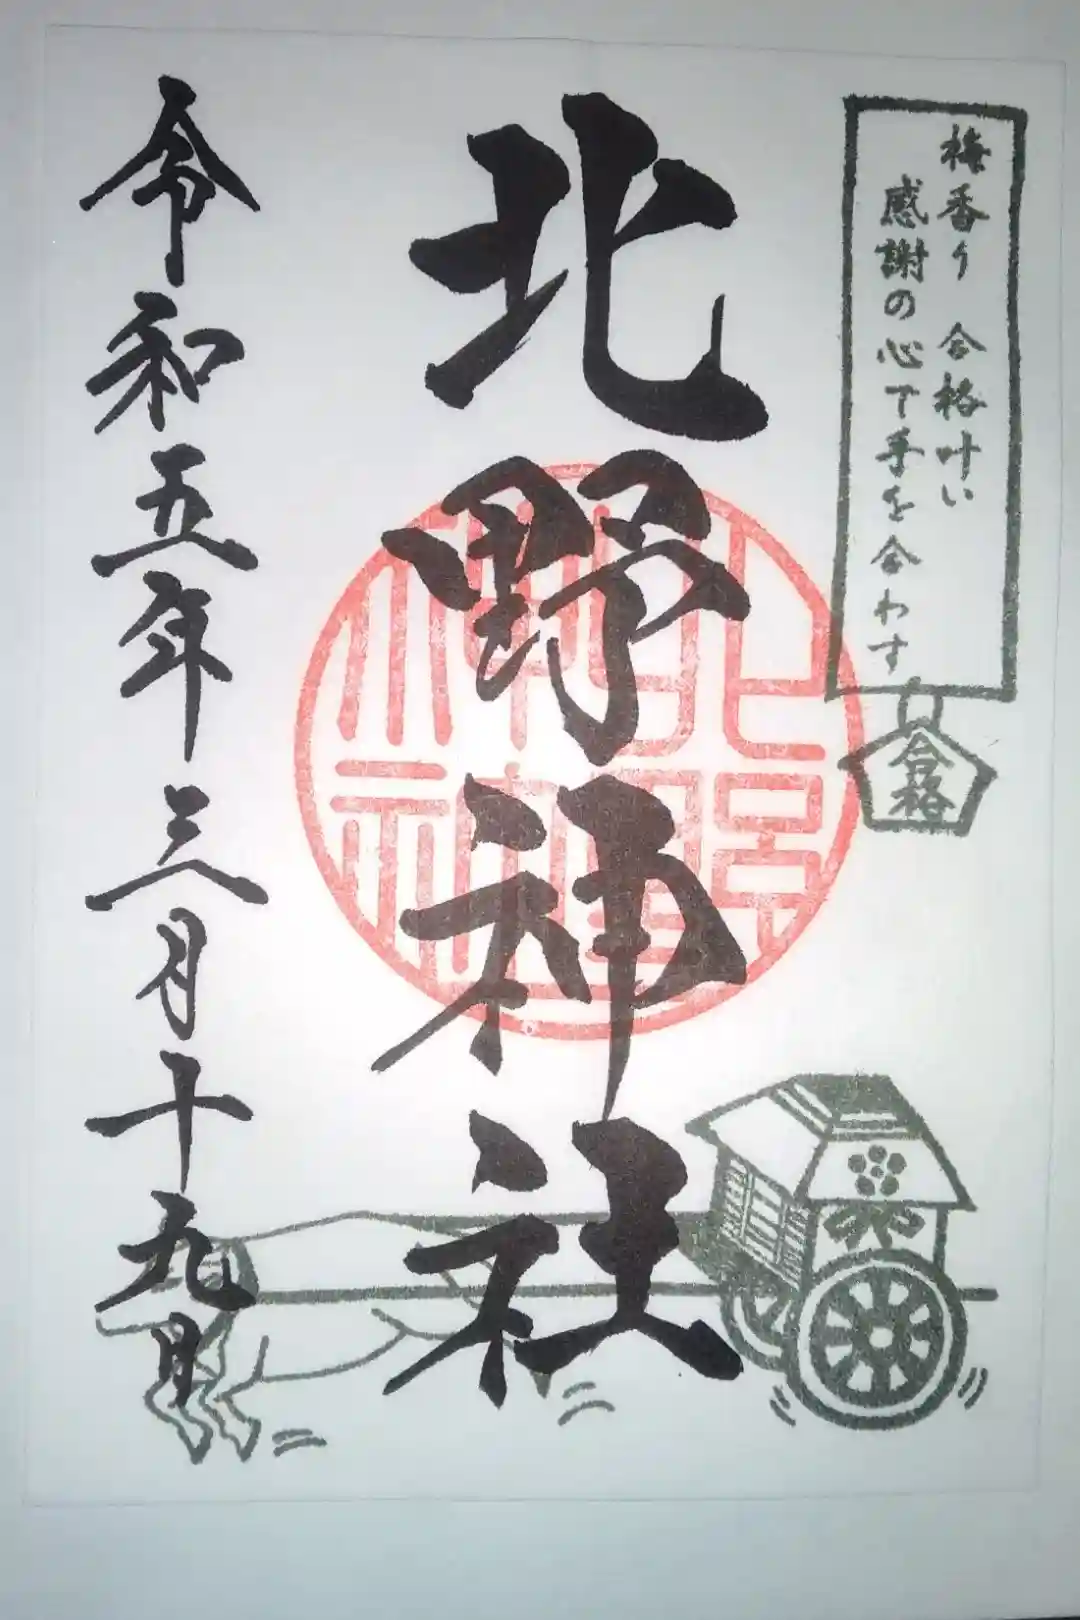 梅香り 合格叶い
感謝の心で手を合わす
合格
北野神社
令和五年三月十九日